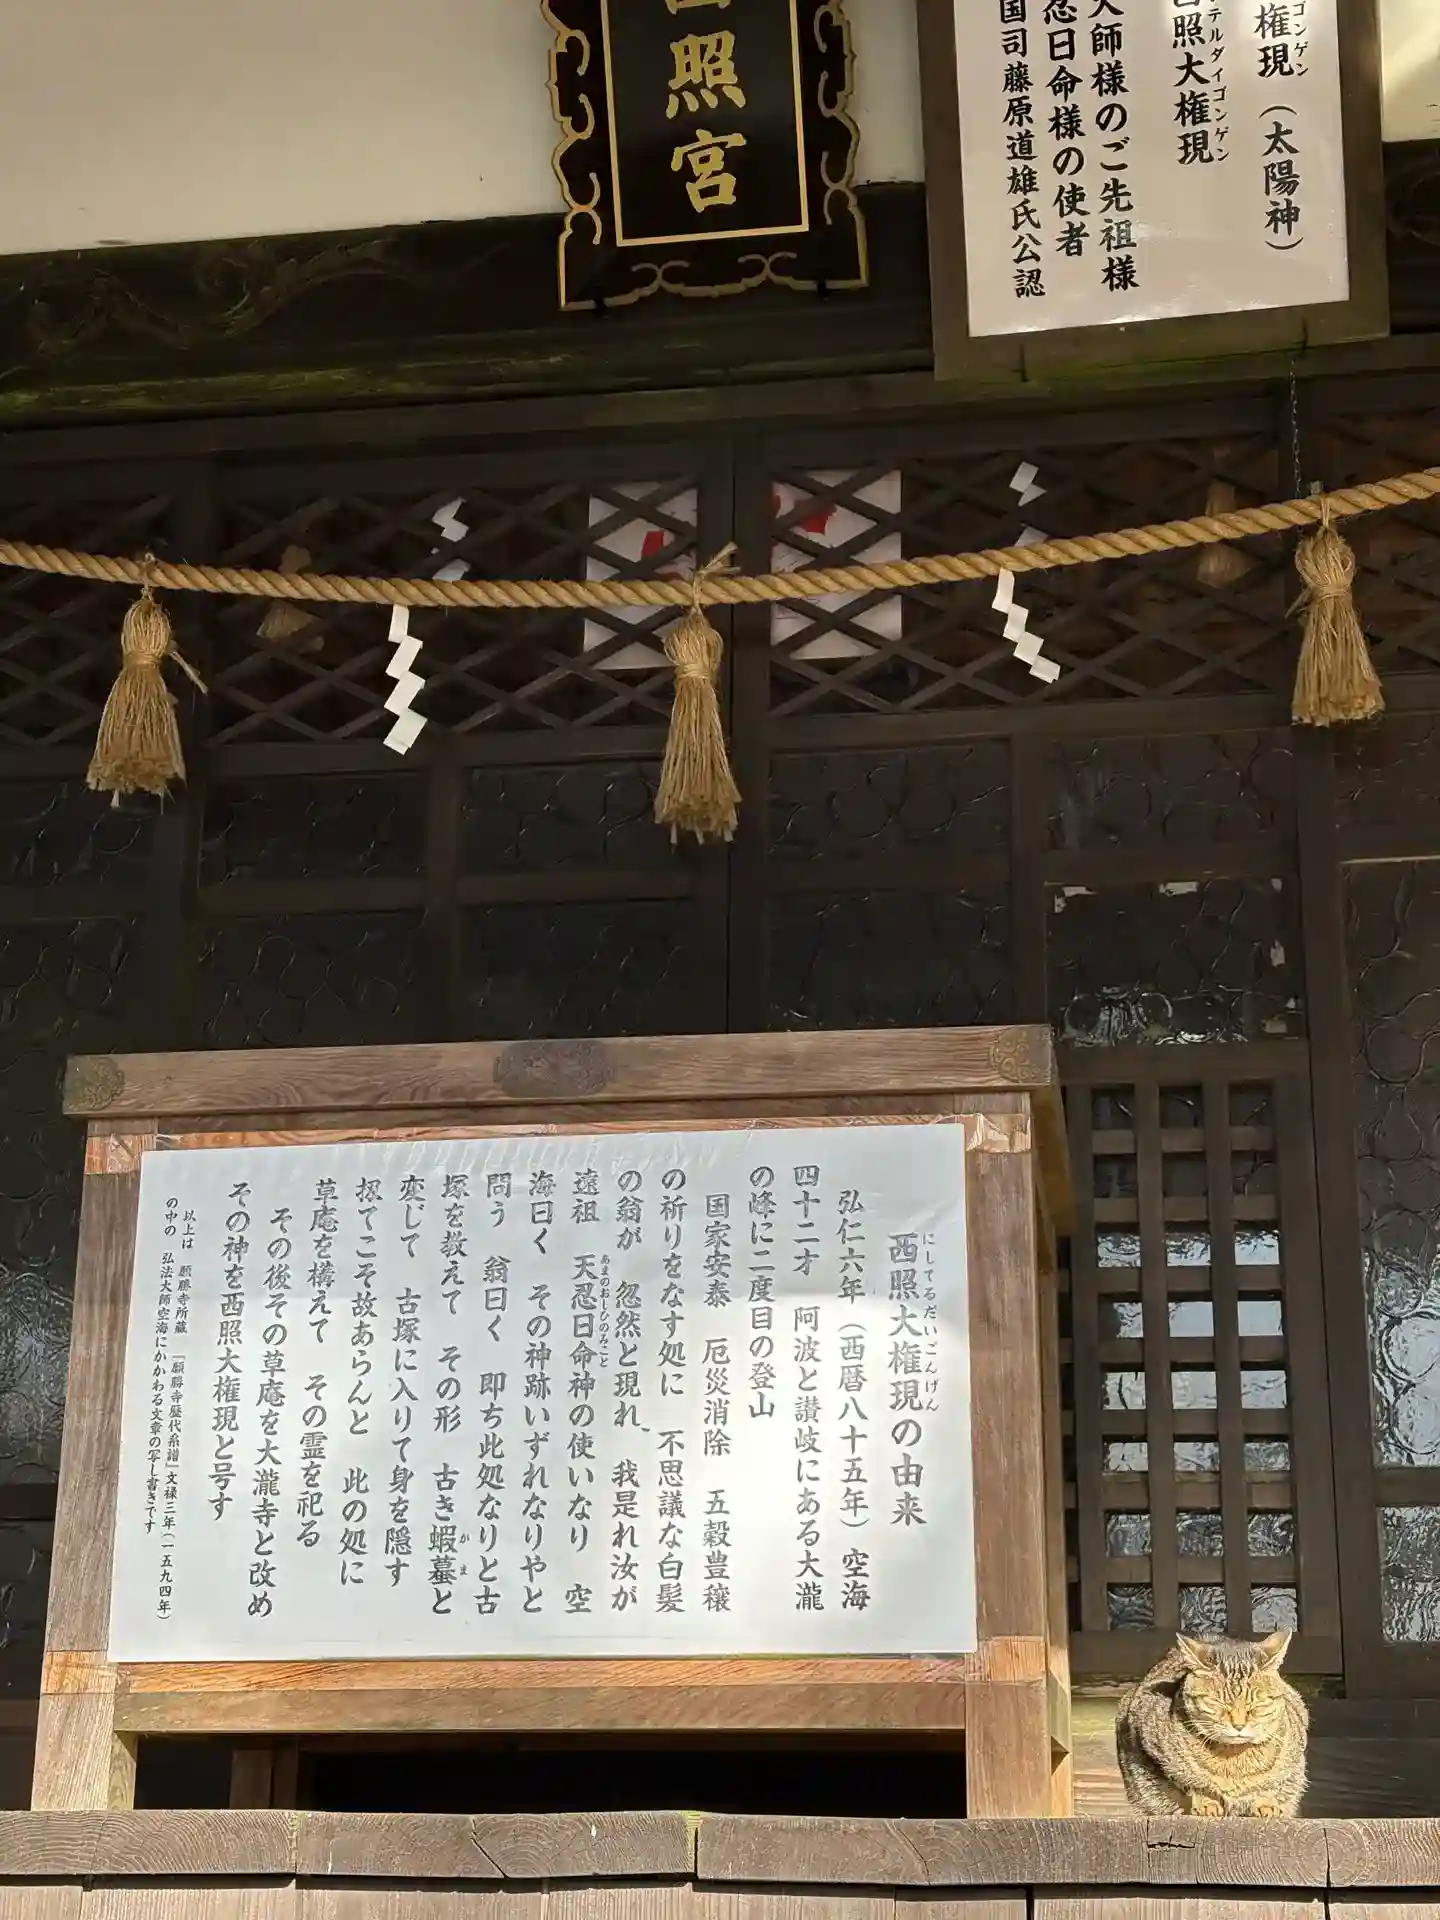 照宮
権現（太陽神）
ゴンゲン
照大権現
テルダイゴンゲン
大師様のご先祖様
忍日命様の使者
国司藤原道雄氏公認
西照大権現の由来
にしてるだいごんげん
弘仁六年（西暦八十五年）空海
四十二才　阿波と讃岐にある大瀧
の峰に二度目の登山
国家安泰　厄災消除　五穀豊穣
の祈りをなす処に　不思議な白髪
の翁が　忽然と現れ、我是れ汝が
遠祖　天忍日命神の使いなり　空
あまのおしひのみこと
海曰く　その神跡いずれなりやと
問う　翁曰く　即ち此処なりと古
塚を教えて　その形　古き蝦蟇と
がま
変じて　古塚に入りて身を隠す
扨てこそ故あらんと　此の処に
草庵を構えて　その霊を祀る
その後その草庵を大瀧寺と改め
その神を西照大権現と号す
以上は　願勝寺所蔵　『願勝寺歴代系譜』文禄三年（一五九四年）
の中の　弘法大師空海にかかわる文章の写し書きです